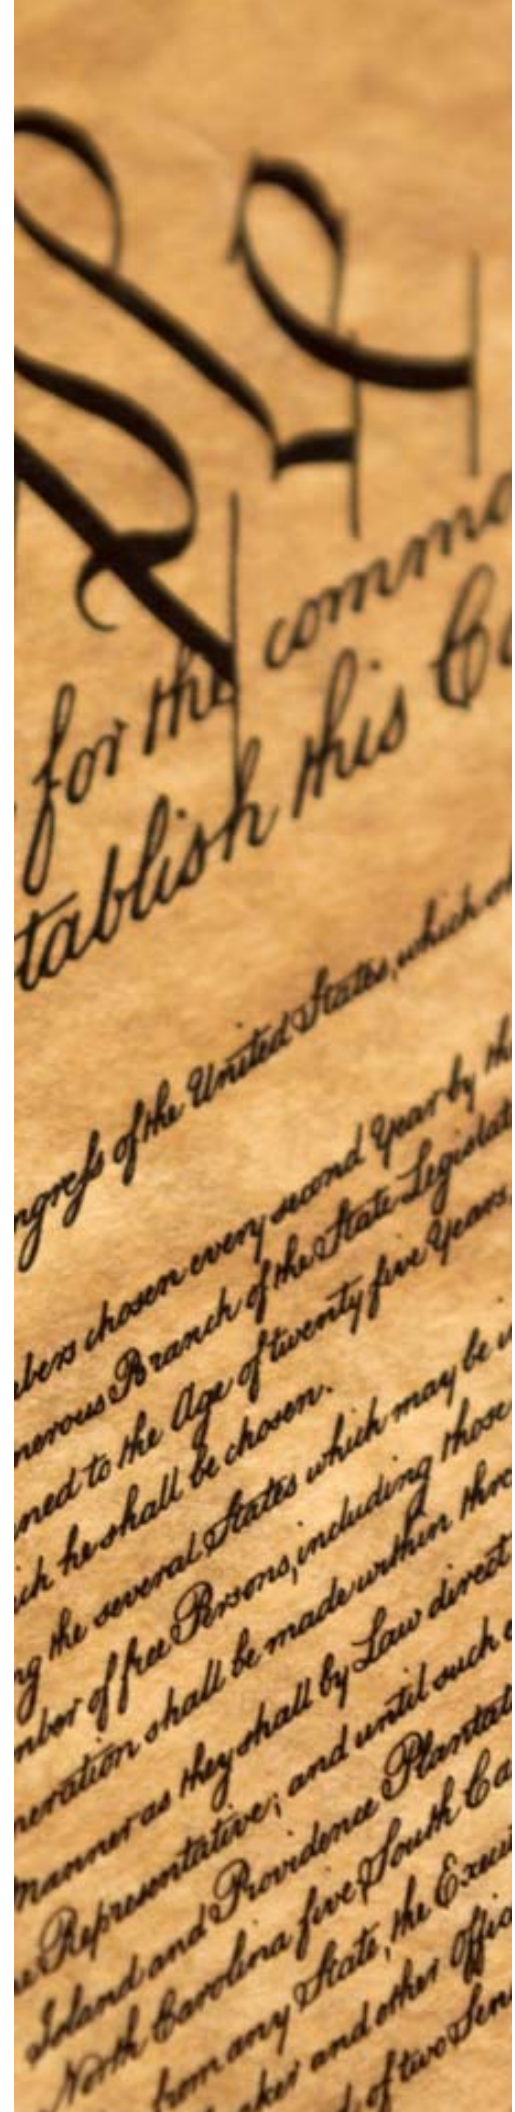 We
for the commo
tablish this Co
ngress of the United States, which sh
bers chosen every second Year by th
nerous Branch of the State Legislat
ned to the Age of twenty five Years,
ich he shall be chosen.
ng the several States which may be i
mber of free Persons, including those
meration shall be made within thre
Manner as they shall by Law direct
e Representative; and until such e
Island and Providence Plantat
North Carolina five, South Ca
from any State, the Execu
aker and other Offic
of two Sen